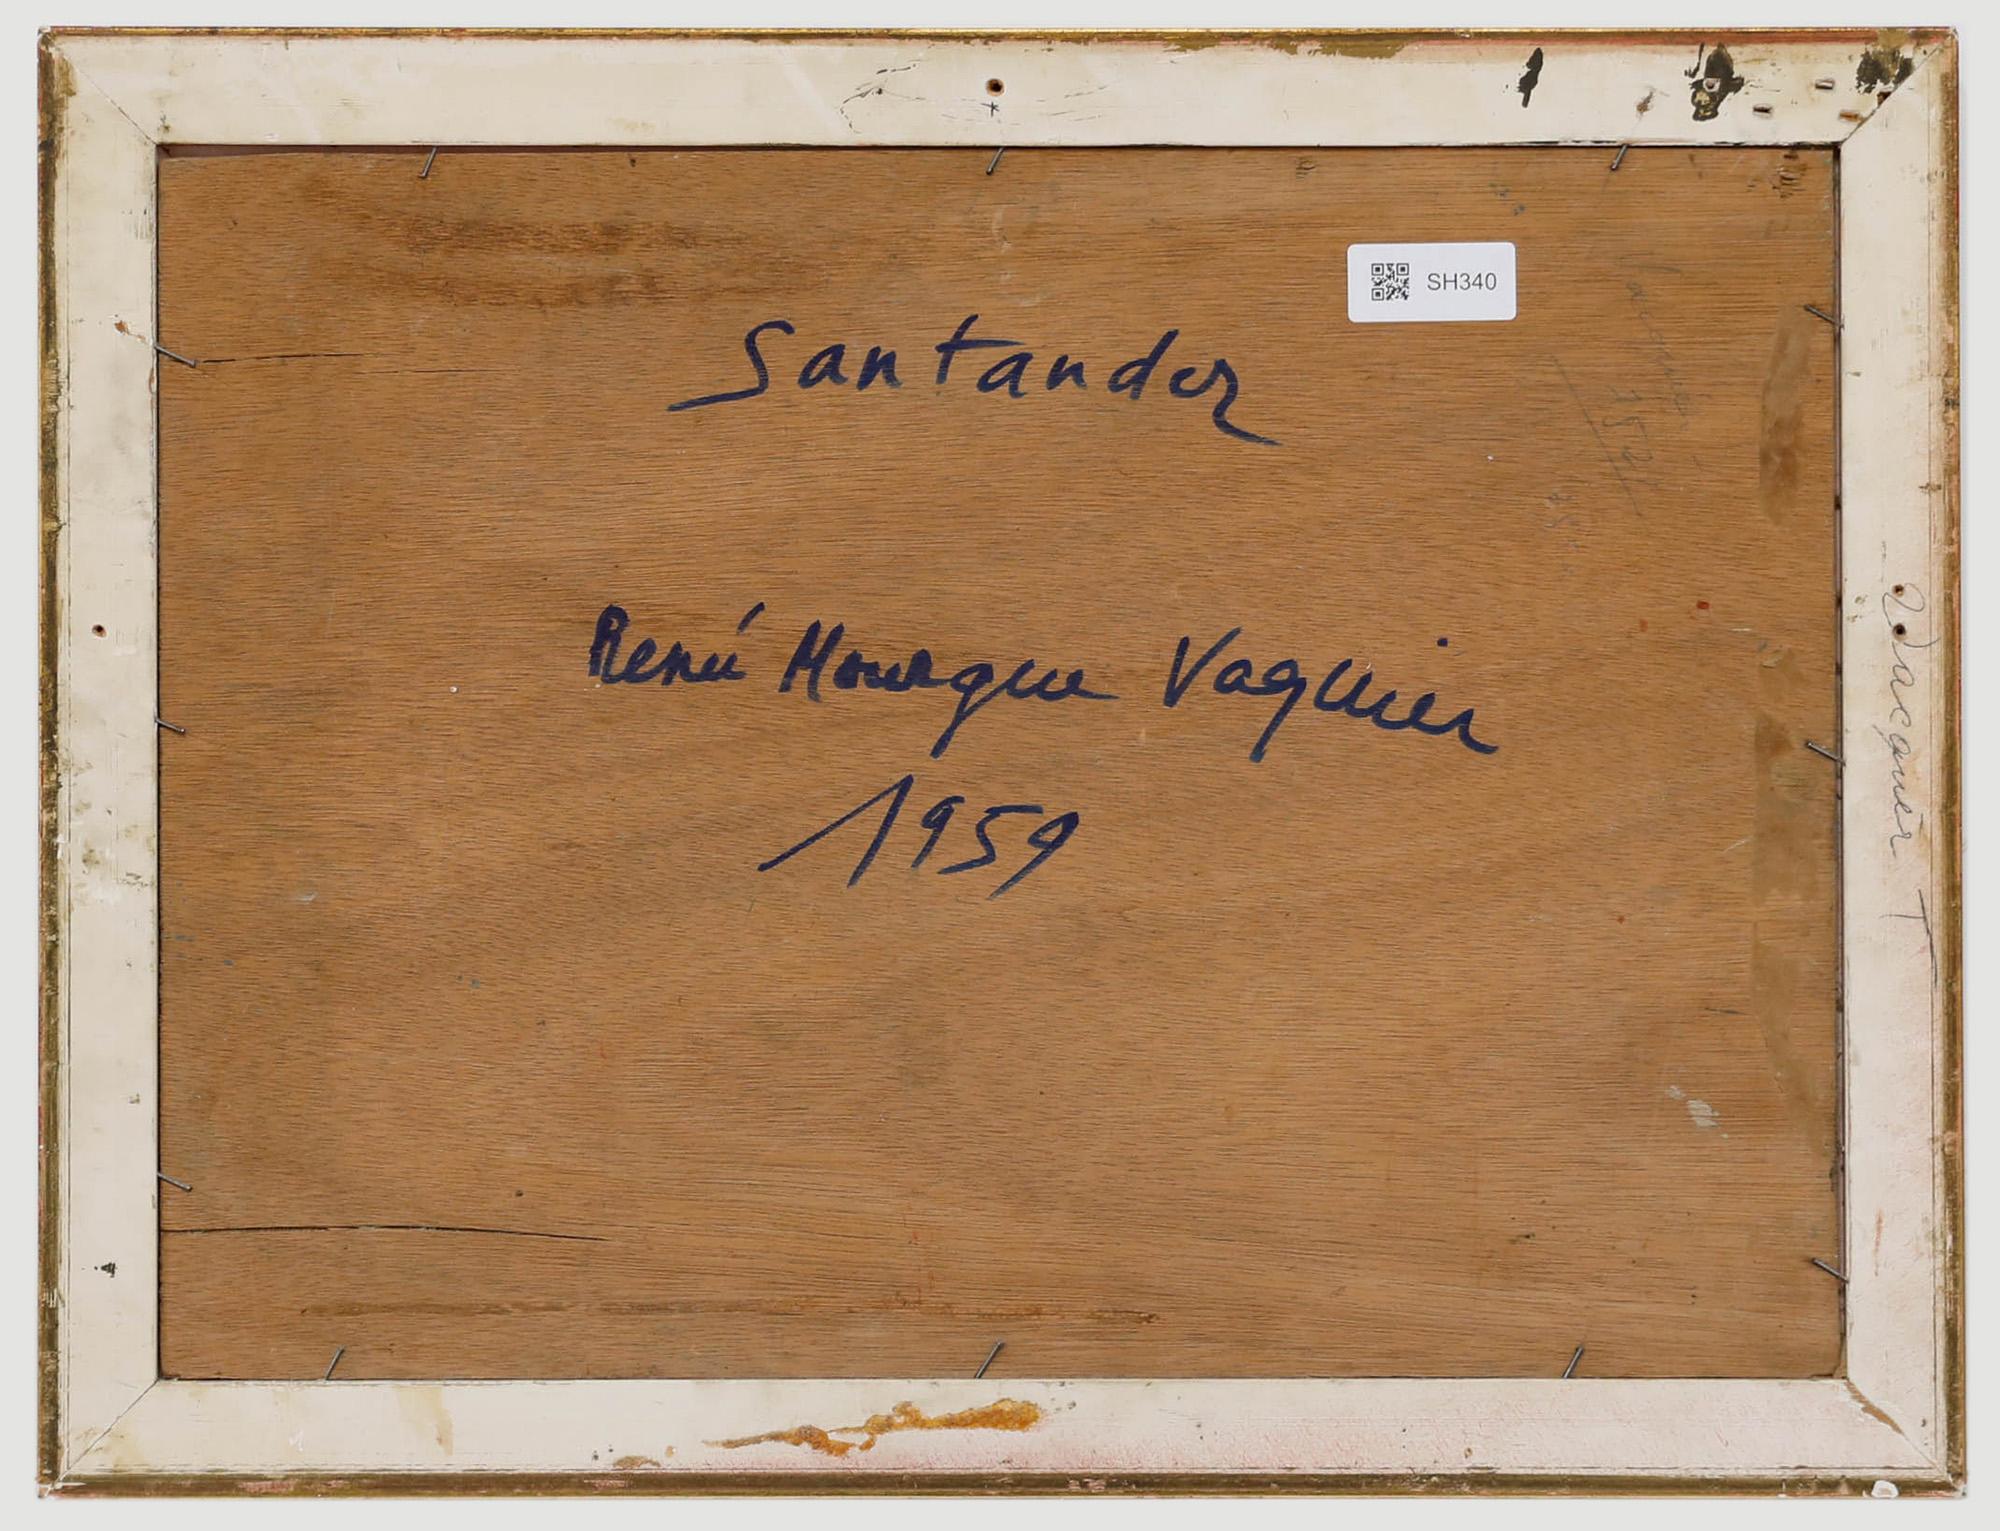 SH340
Santander
René Mourgue Vaquier
1959
Vacquier T